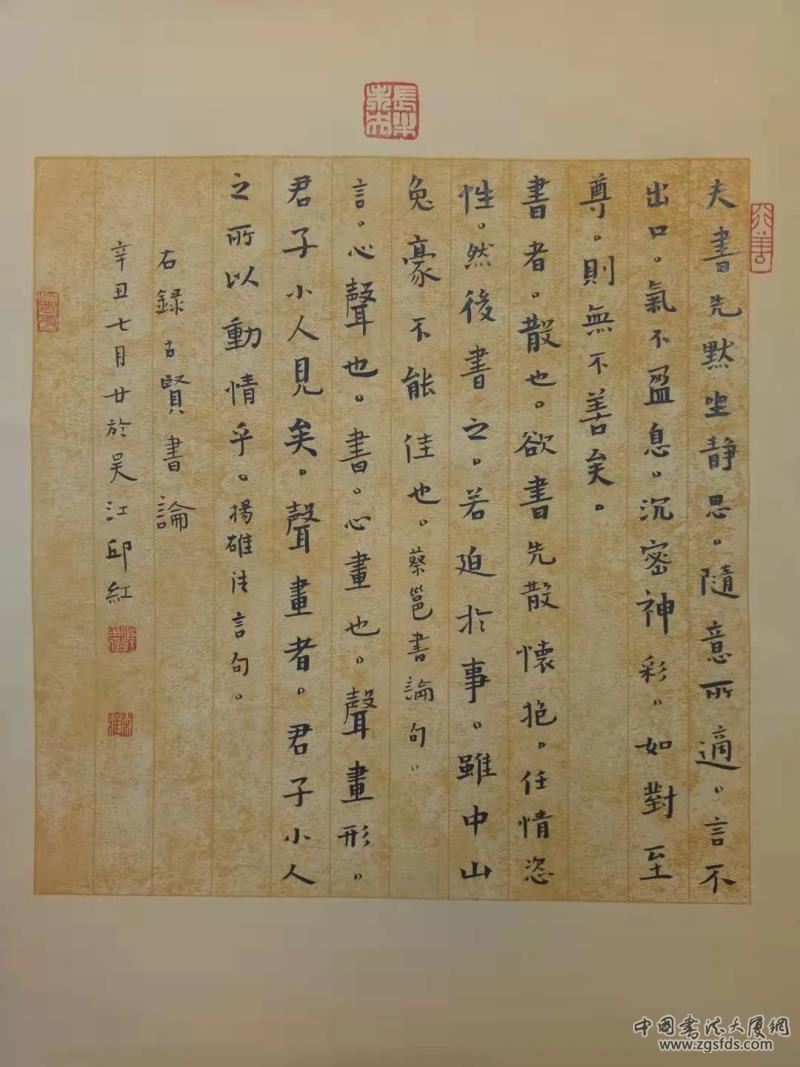 夫書先默坐静思。隨意所適。言不
出口。氣不盈息。沉密神彩。如對至
尊。則無不善矣。
書者。散也。欲書先散懷抱。任情恣
性。然後書之。若迫於事。雖中山
兔豪不能佳也。蔡邕書論句。
言。心聲也。書。心畫也。聲畫形。
君子小人見矣。聲畫者。君子小人
之所以動情乎。揚雄法言句。
右録古賢書論
辛丑七月廿於吴江邱紅
長樂未央
中国书法大厦網
www.zgsfds.com